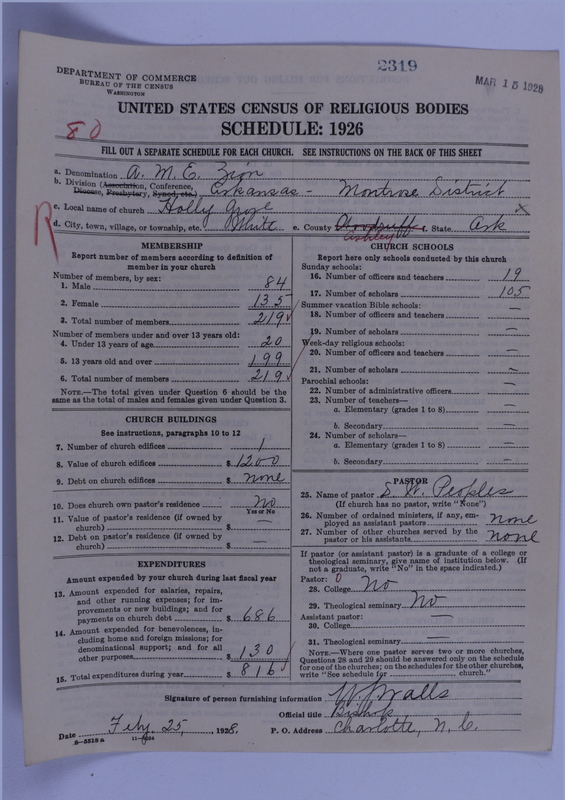 2319
MAR 15 1928
DEPARTMENT OF COMMERCE
BUREAU OF THE CENSUS
WASHINGTON
UNITED STATES CENSUS OF RELIGIOUS BODIES
SCHEDULE: 1926
80
FILL OUT A SEPARATE SCHEDULE FOR EACH CHURCH. SEE INSTRUCTIONS ON THE BACK OF THIS SHEET
a. Denomination A. M. E. Zion
b. Division (Association, Conference, Diocese, Presbytery, Synod, etc.) Arkansas - Montrose District
c. Local name of church Holly Grove X
R
d. City, town, village, or township, etc. e. County Woodruff Ashley f. State Ark
MEMBERSHIP
Report number of members according to definition of
member in your church
Number of members, by sex:
1. Male 84
2. Female 135
3. Total number of members 219
Number of members under and over 13 years old:
4. Under 13 years of age 20
5. 13 years old and over 199
6. Total number of members 219
NOTE.—The total given under Question 6 should be the
same as the total of males and females given under Question 3.
CHURCH BUILDINGS
See instructions, paragraphs 10 to 12
7. Number of church edifices 1
8. Value of church edifices $ 1200
9. Debt on church edifices $ none
10. Does church own pastor's residence No
Yes or No
11. Value of pastor's residence (if owned by
church) $ —
12. Debt on pastor's residence (if owned by
church) $ —
EXPENDITURES
Amount expended by your church during last fiscal year
13. Amount expended for salaries, repairs,
and other running expenses; for im-
provements or new buildings; and for
payments on church debt $ 686
14. Amount expended for benevolences, in-
cluding home and foreign missions; for
denominational support; and for all
other purposes $ 130
15. Total expenditures during year $ 816
CHURCH SCHOOLS
Report here only schools conducted by this church
Sunday schools:
16. Number of officers and teachers 19
17. Number of scholars 105
Summer vacation Bible schools:
18. Number of officers and teachers —
19. Number of scholars —
Week-day religious schools:
20. Number of officers and teachers —
21. Number of scholars —
Parochial schools:
22. Number of administrative officers —
23. Number of teachers—
a. Elementary (grades 1 to 8) —
b. Secondary —
24. Number of scholars—
a. Elementary (grades 1 to 8) —
b. Secondary —
PASTOR
25. Name of pastor S. W. Peoples
(If church has no pastor, write "None")
26. Number of ordained ministers, if any, em-
ployed as assistant pastors none
27. Number of other churches served by the
pastor or his assistants none
If pastor (or assistant pastor) is a graduate of a college or
theological seminary, give name of institution below. (If
not a graduate, write "No" in the space indicated.)
Pastor: 0
28. College No
29. Theological seminary No
Assistant pastor: —
30. College
31. Theological seminary —
NOTE.—Where one pastor serves two or more churches,
Questions 28 and 29 should be answered only on the schedule
for one of the churches; on the schedules for the other churches,
write "See schedule for church."
Signature of person furnishing information W. J. Walls
Official title Bishop
Date Feby. 25, 1928. P. O. Address Charlotte, N. C.
8-5318 a